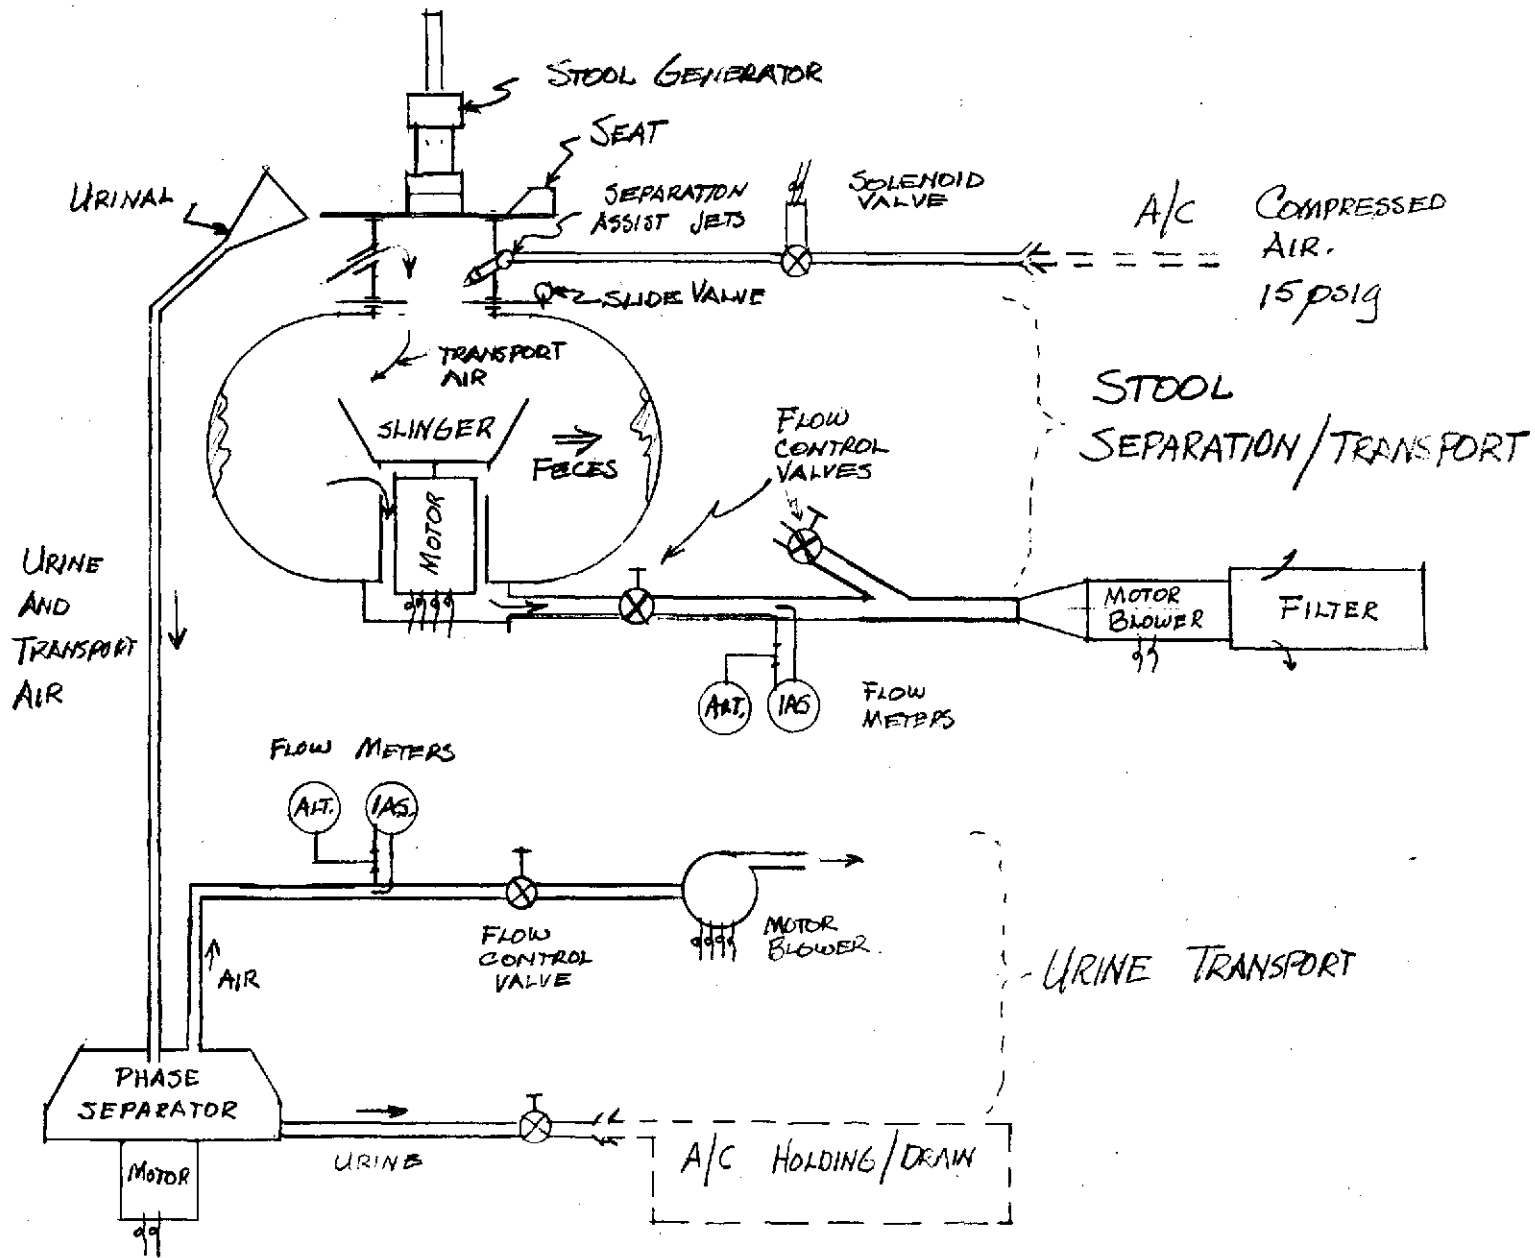 STOOL GENERATOR
SEAT
URINAL
SEPARATION
ASSIST JETS
SOLENOID
VALVE
A/C COMPRESSED
AIR.
15 psig
SLIDE VALVE
TRANSPORT
AIR
SLINGER
FECES
MOTOR
FLOW
CONTROL
VALVES
STOOL
SEPARATION/TRANSPORT
URINE
AND
TRANSPORT
AIR
MOTOR
BLOWER
FILTER
ALT.
IAS
FLOW
METERS
FLOW METERS
ALT.
IAS.
AIR
FLOW
CONTROL
VALVE
MOTOR
BLOWER.
URINE TRANSPORT
PHASE
SEPARATOR
MOTOR
URINE
A/C HOLDING/DRAIN